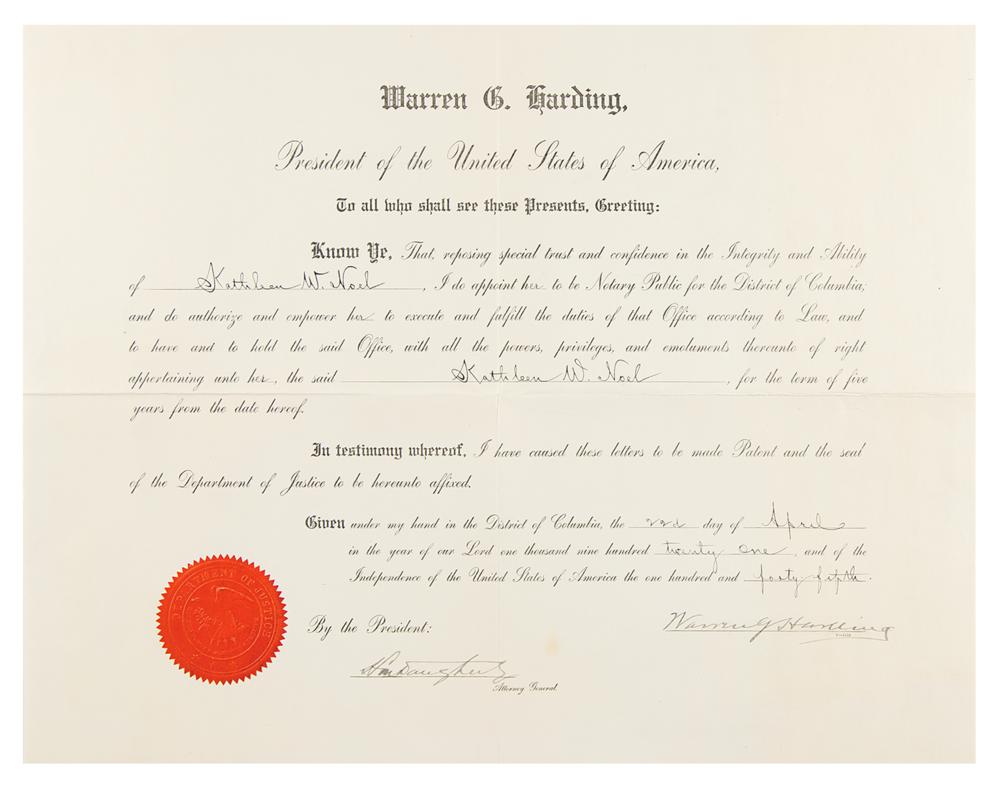 Warren G. Harding,
President of the United States of America,
To all who shall see these Presents, Greeting:
Know Ye, That, reposing special trust and confidence in the Integrity and Ability
of Kathleen W. Noel, I do appoint her to be Notary Public for the District of Columbia;
and do authorize and empower her to execute and fulfill the duties of that Office according to Law, and
to have and to hold the said Office, with all the powers, privileges, and emoluments thereunto of right
appertaining unto her, the said Kathleen W. Noel, for the term of five
years from the date hereof.
In testimony whereof, I have caused these letters to be made Patent and the seal
of the Department of Justice to be hereunto affixed.
Given under my hand in the District of Columbia, the 22d day of April
in the year of our Lord one thousand nine hundred twenty one, and of the
Independence of the United States of America the one hundred and forty fifth.
DEPARTMENT OF JUSTICE
By the President:
Warren G Harding
HM Daugherty
Attorney General.